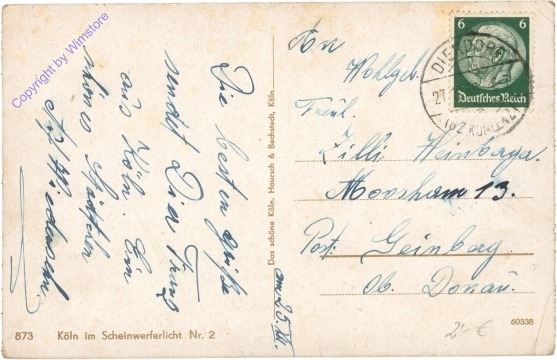 copyright by Wimstore
Die besten Grüße
sendet Dir Franz
aus Köln. Ein
schönes Städtchen
Auf Wiedersehn.
am 25.
Das schöne Köln. Hoursch & Bechstedt, Köln
873 Köln im Scheinwerferlicht Nr. 2
6 6
Deutsches Reich
27.
An
Wohlgeb.
Fräul.
Zilli Weinberga.
Moosham 13.
Post. Geinberg
Ob. Donau.
60338
2'- €